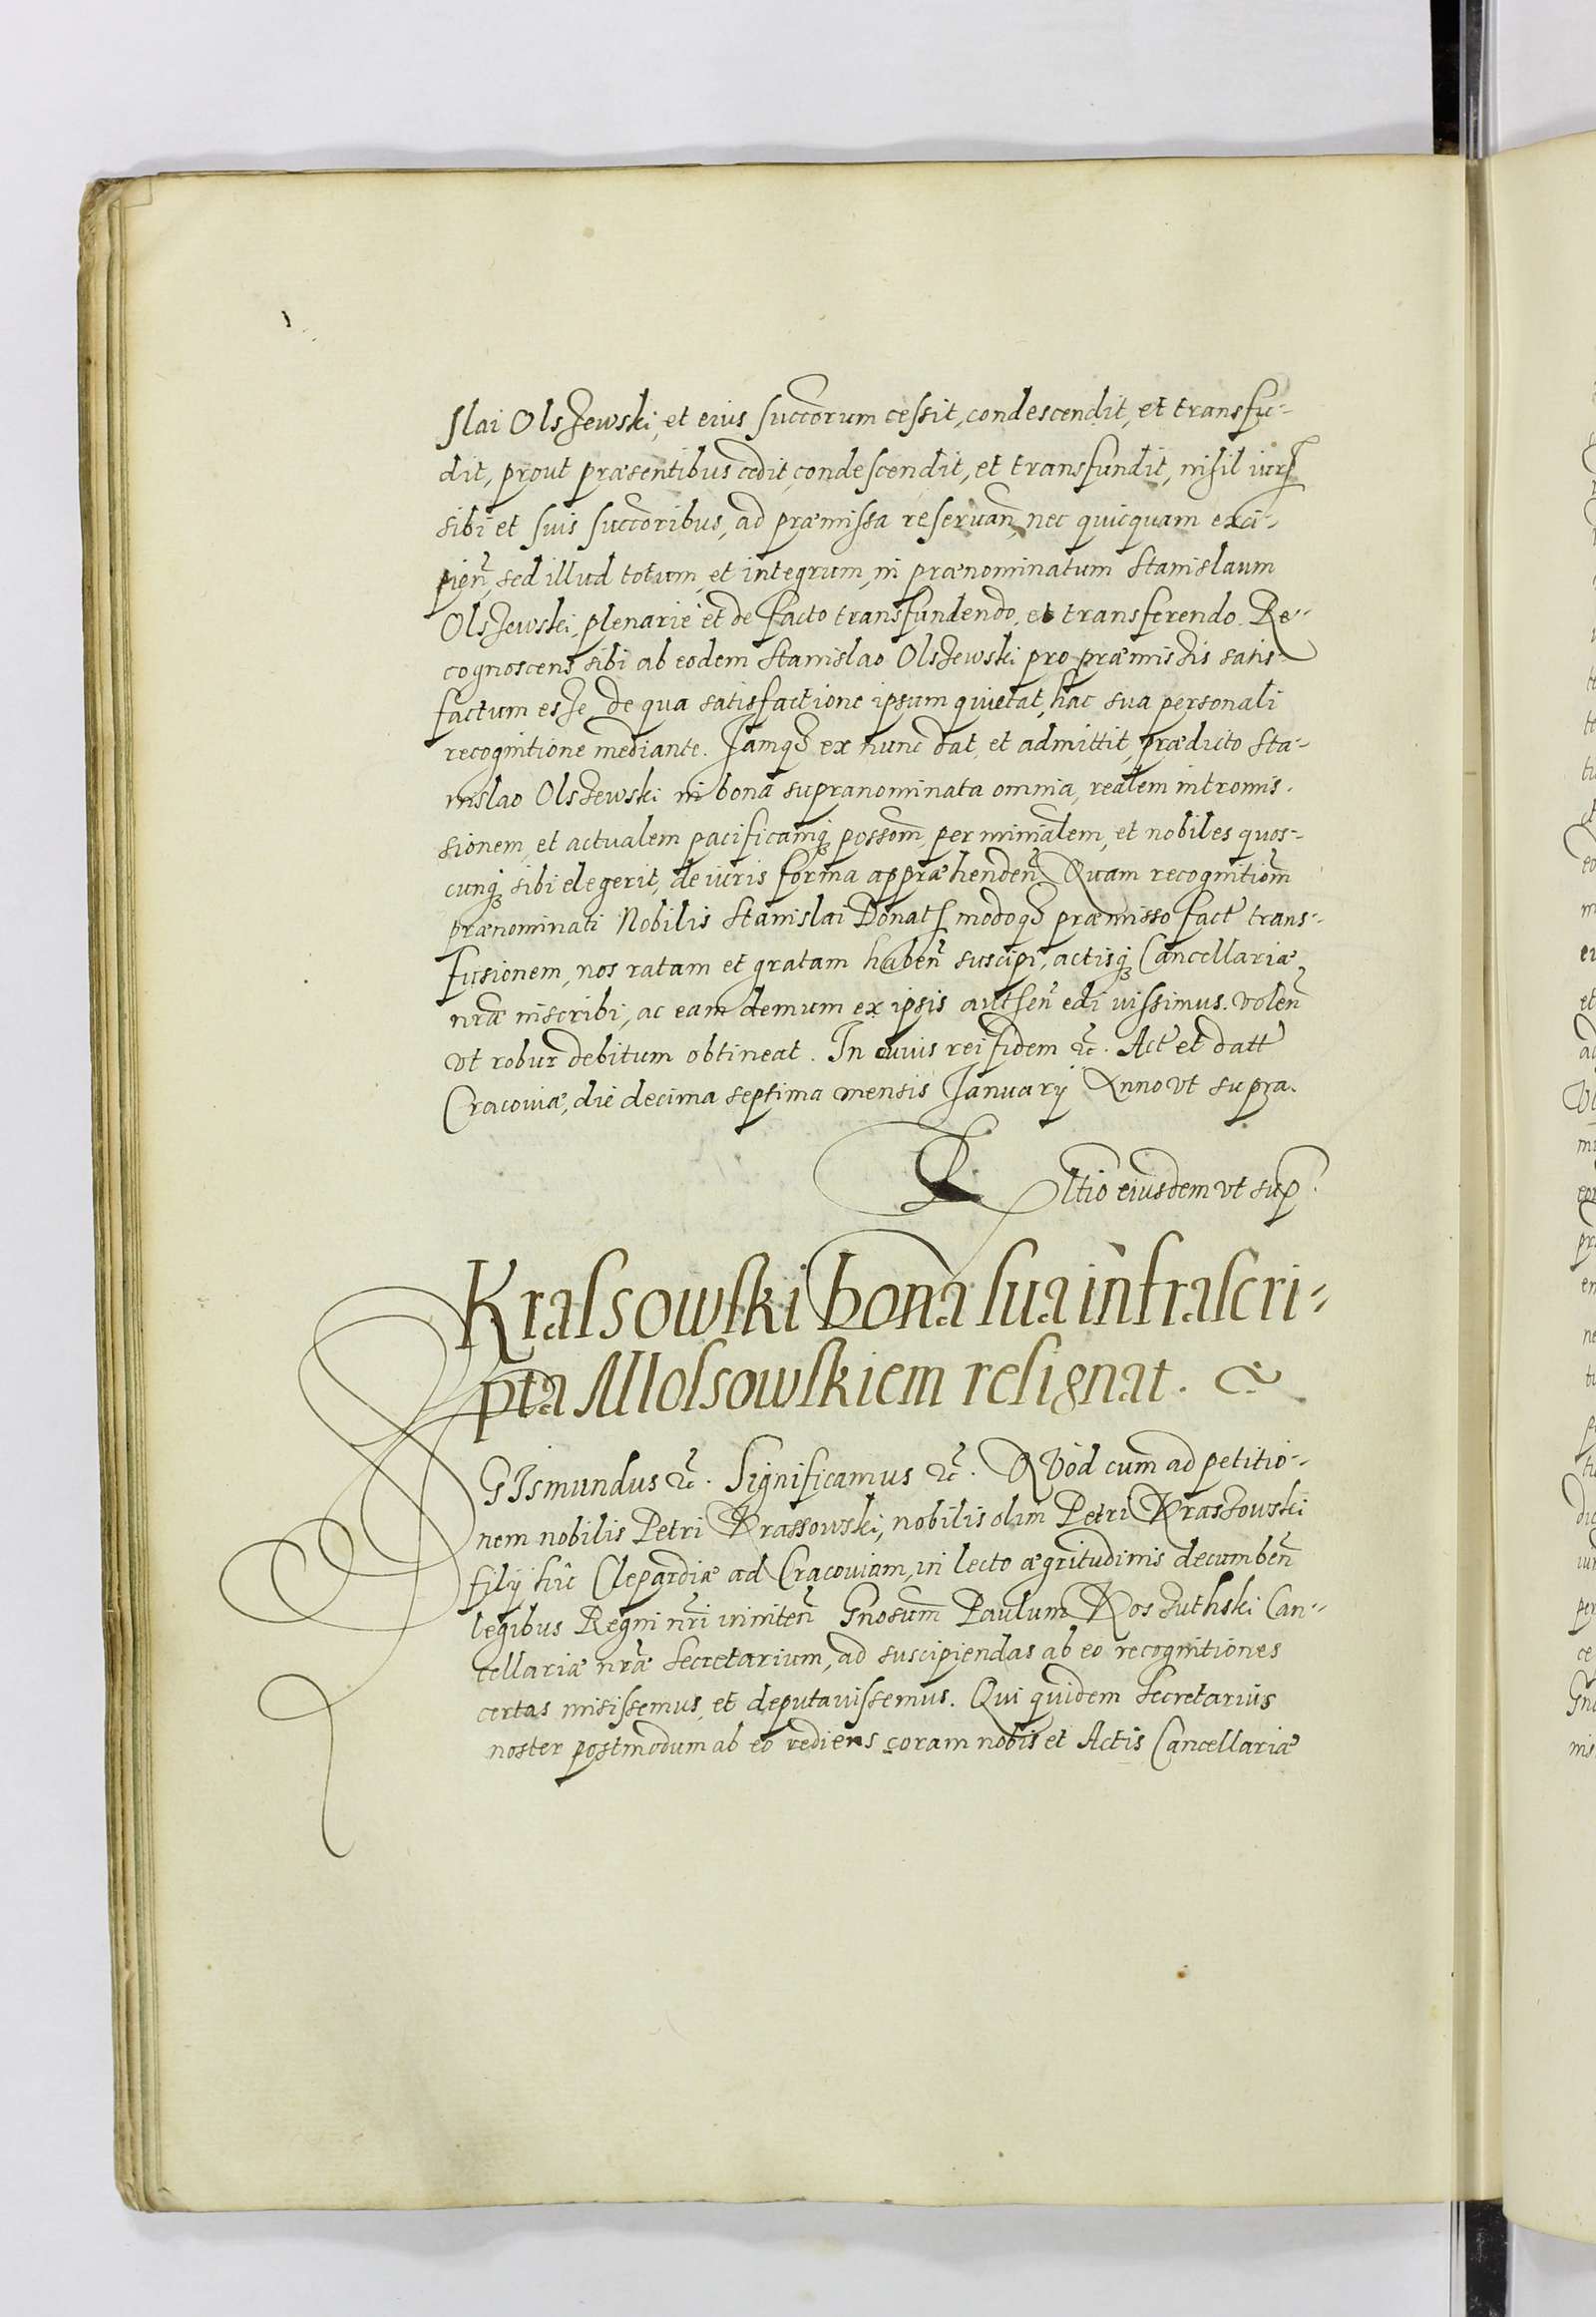 slai Olszewski, et eius succorum cessit, condescendit, et transfu-
dit, prout præsentibus cedit, condescendit, et transfundit, nihil iuris
sibi et suis succoribus, ad præmissa reseruan, nec quicquam exci-
pien, sed illud totum, et integrum, in prænominatum Stanislaum
Olszewski, plenarie et de facto transfundendo, et transferendo. Re-
cognoscens sibi ab eodem Stanislao Olszewski pro præmissis satis-
factum esse de qua satisfactione ipsum quietat, hac sua personali
recognitione mediante. Jamq ex nunc dat, et admittit, prædicto Sta-
nislao Olszewski in bona supranominata omnia, realem intromis-
sionem, et actualem pacificamq possom, per minialem, et nobiles quos-
cunq sibi elegerit, de iuris forma appræhenden. Quam recognitiom
prænominati Nobilis Stanislai Donat modoq præmisso fact trans-
fusionem, nos ratam et gratam haben suscipi, actisq Cancellariæ
nræ inscribi, ac eam demum ex ipsis authen edi iussimus. Volen
vt robur debitum obtineat. In cuius rei fidem &c. Act et datt
Cracouiæ, die decima septima mensis Januarij Anno vt supra.
Rltio eiusdem vt sup
Krassowski bona sua infrascri-
pta Mlossowskiem resignat.
SGismundus &c. Significamus &c. QVod cum ad petitio-
nem nobilis Petri Krassowski, nobilis olim Petri Krassowski
filij hic Clepardiæ ad Cracouiam, in lecto ægritudinis decumben
legibus Regni nri inniten Gnosum Paulum Koszuthski Can-
cellariæ nræ Secretarium, ad suscipiendas ab eo recognitiones
certas misissemus, et deputauissemus. Qui quidem Secretarius
noster postmodum ab eo rediens coram nobis et Actis Cancellariæ